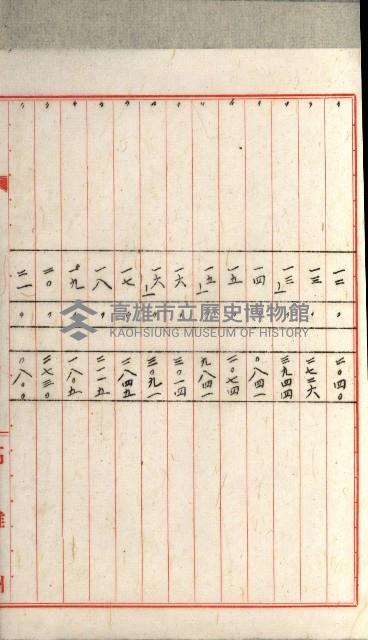 〃 一二 〃 二〇四〇
〃 一三 〃 二七二六
〃 一三ノ一 〃 三九四四
〃 一四 〃 〇八四一
〃 一五 〃 二〇七四
〃 一五ノ一 〃 九八四一
〃 一六 〃 三〇一四
〃 一六ノ一 〃 三〇九一
〃 一七 〃 二八四五
〃 一八 〃 二一一五
〃 一九 〃 一八〇五
〃 二〇 〃 二七三〇
〃 二一 〃 〇八〇〇
高雄州
高雄市立歷史博物館
KAOHSIUNG MUSEUM OF HISTORY